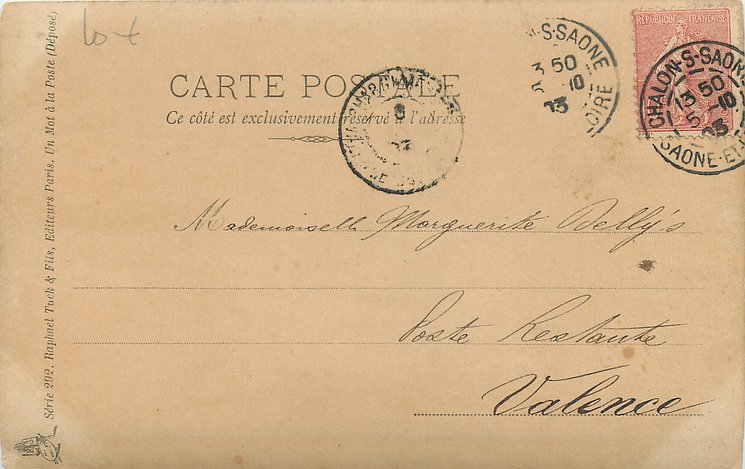 lot
CARTE POSTALE
Ce côté est exclusivement réservé à l'adresse
S-SAONE
3 50
10
03
OIRE
RÉPUBLIQUE FRANÇAISE
CHALON-S-SAONE
13 50
5 -10
03
SAONE-ET-L
Mademoiselle Marguerite Delly's
Poste Restante
Valence
Série 292. Raphael Tuck & Fils, Editeurs Paris. Un Mot à la Poste (Déposé)